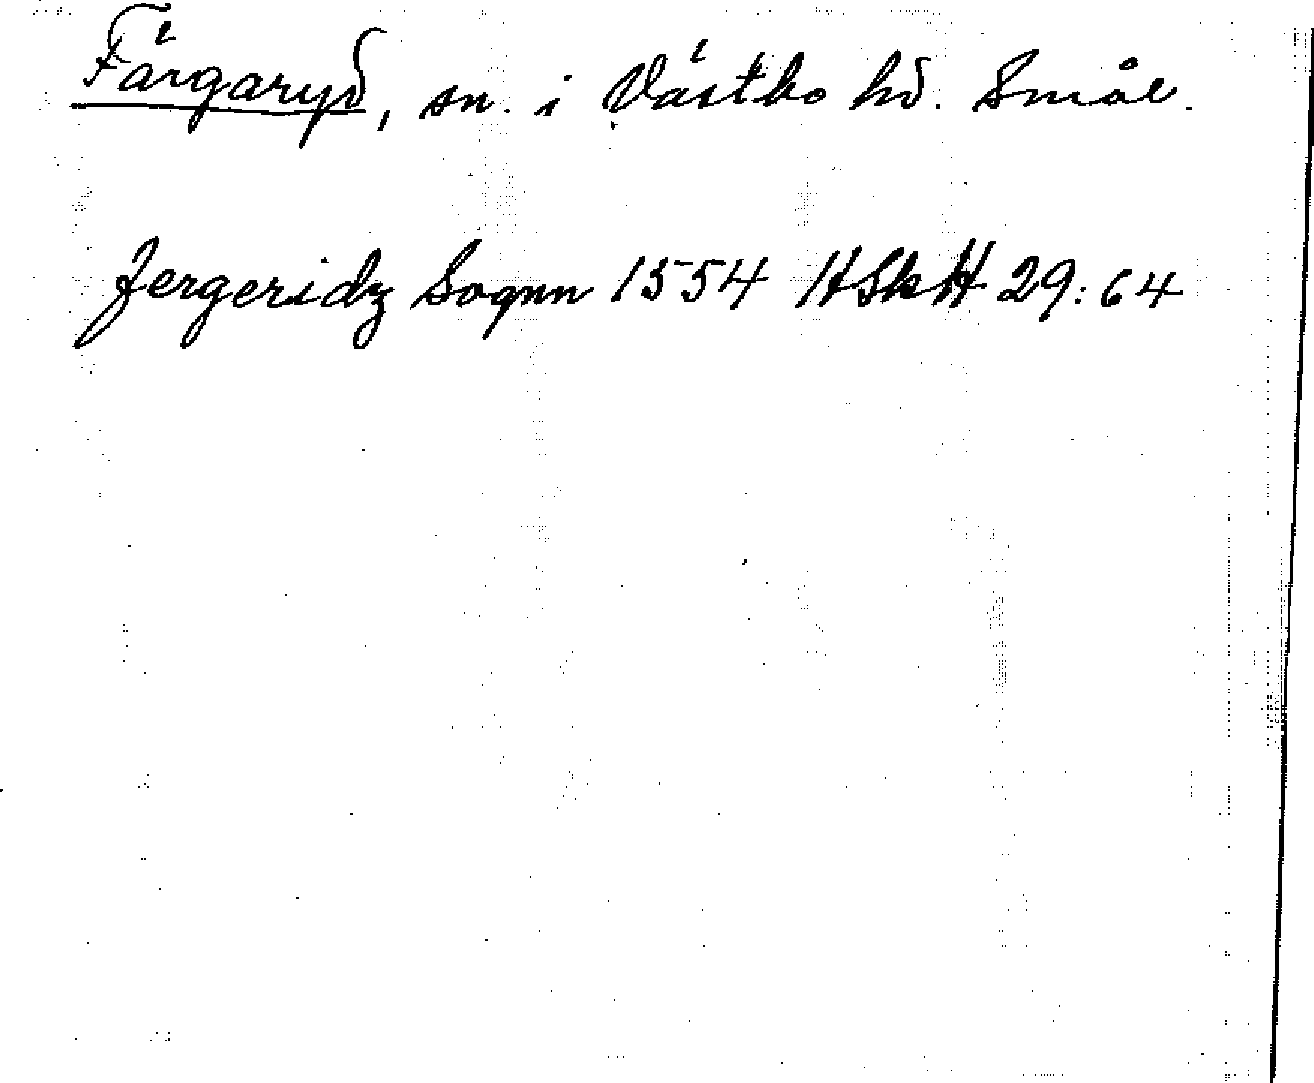 Färgaryd, sn. i Västbo hd. Smål.
Fergeridz Sognn 1554 HSkH 29:64